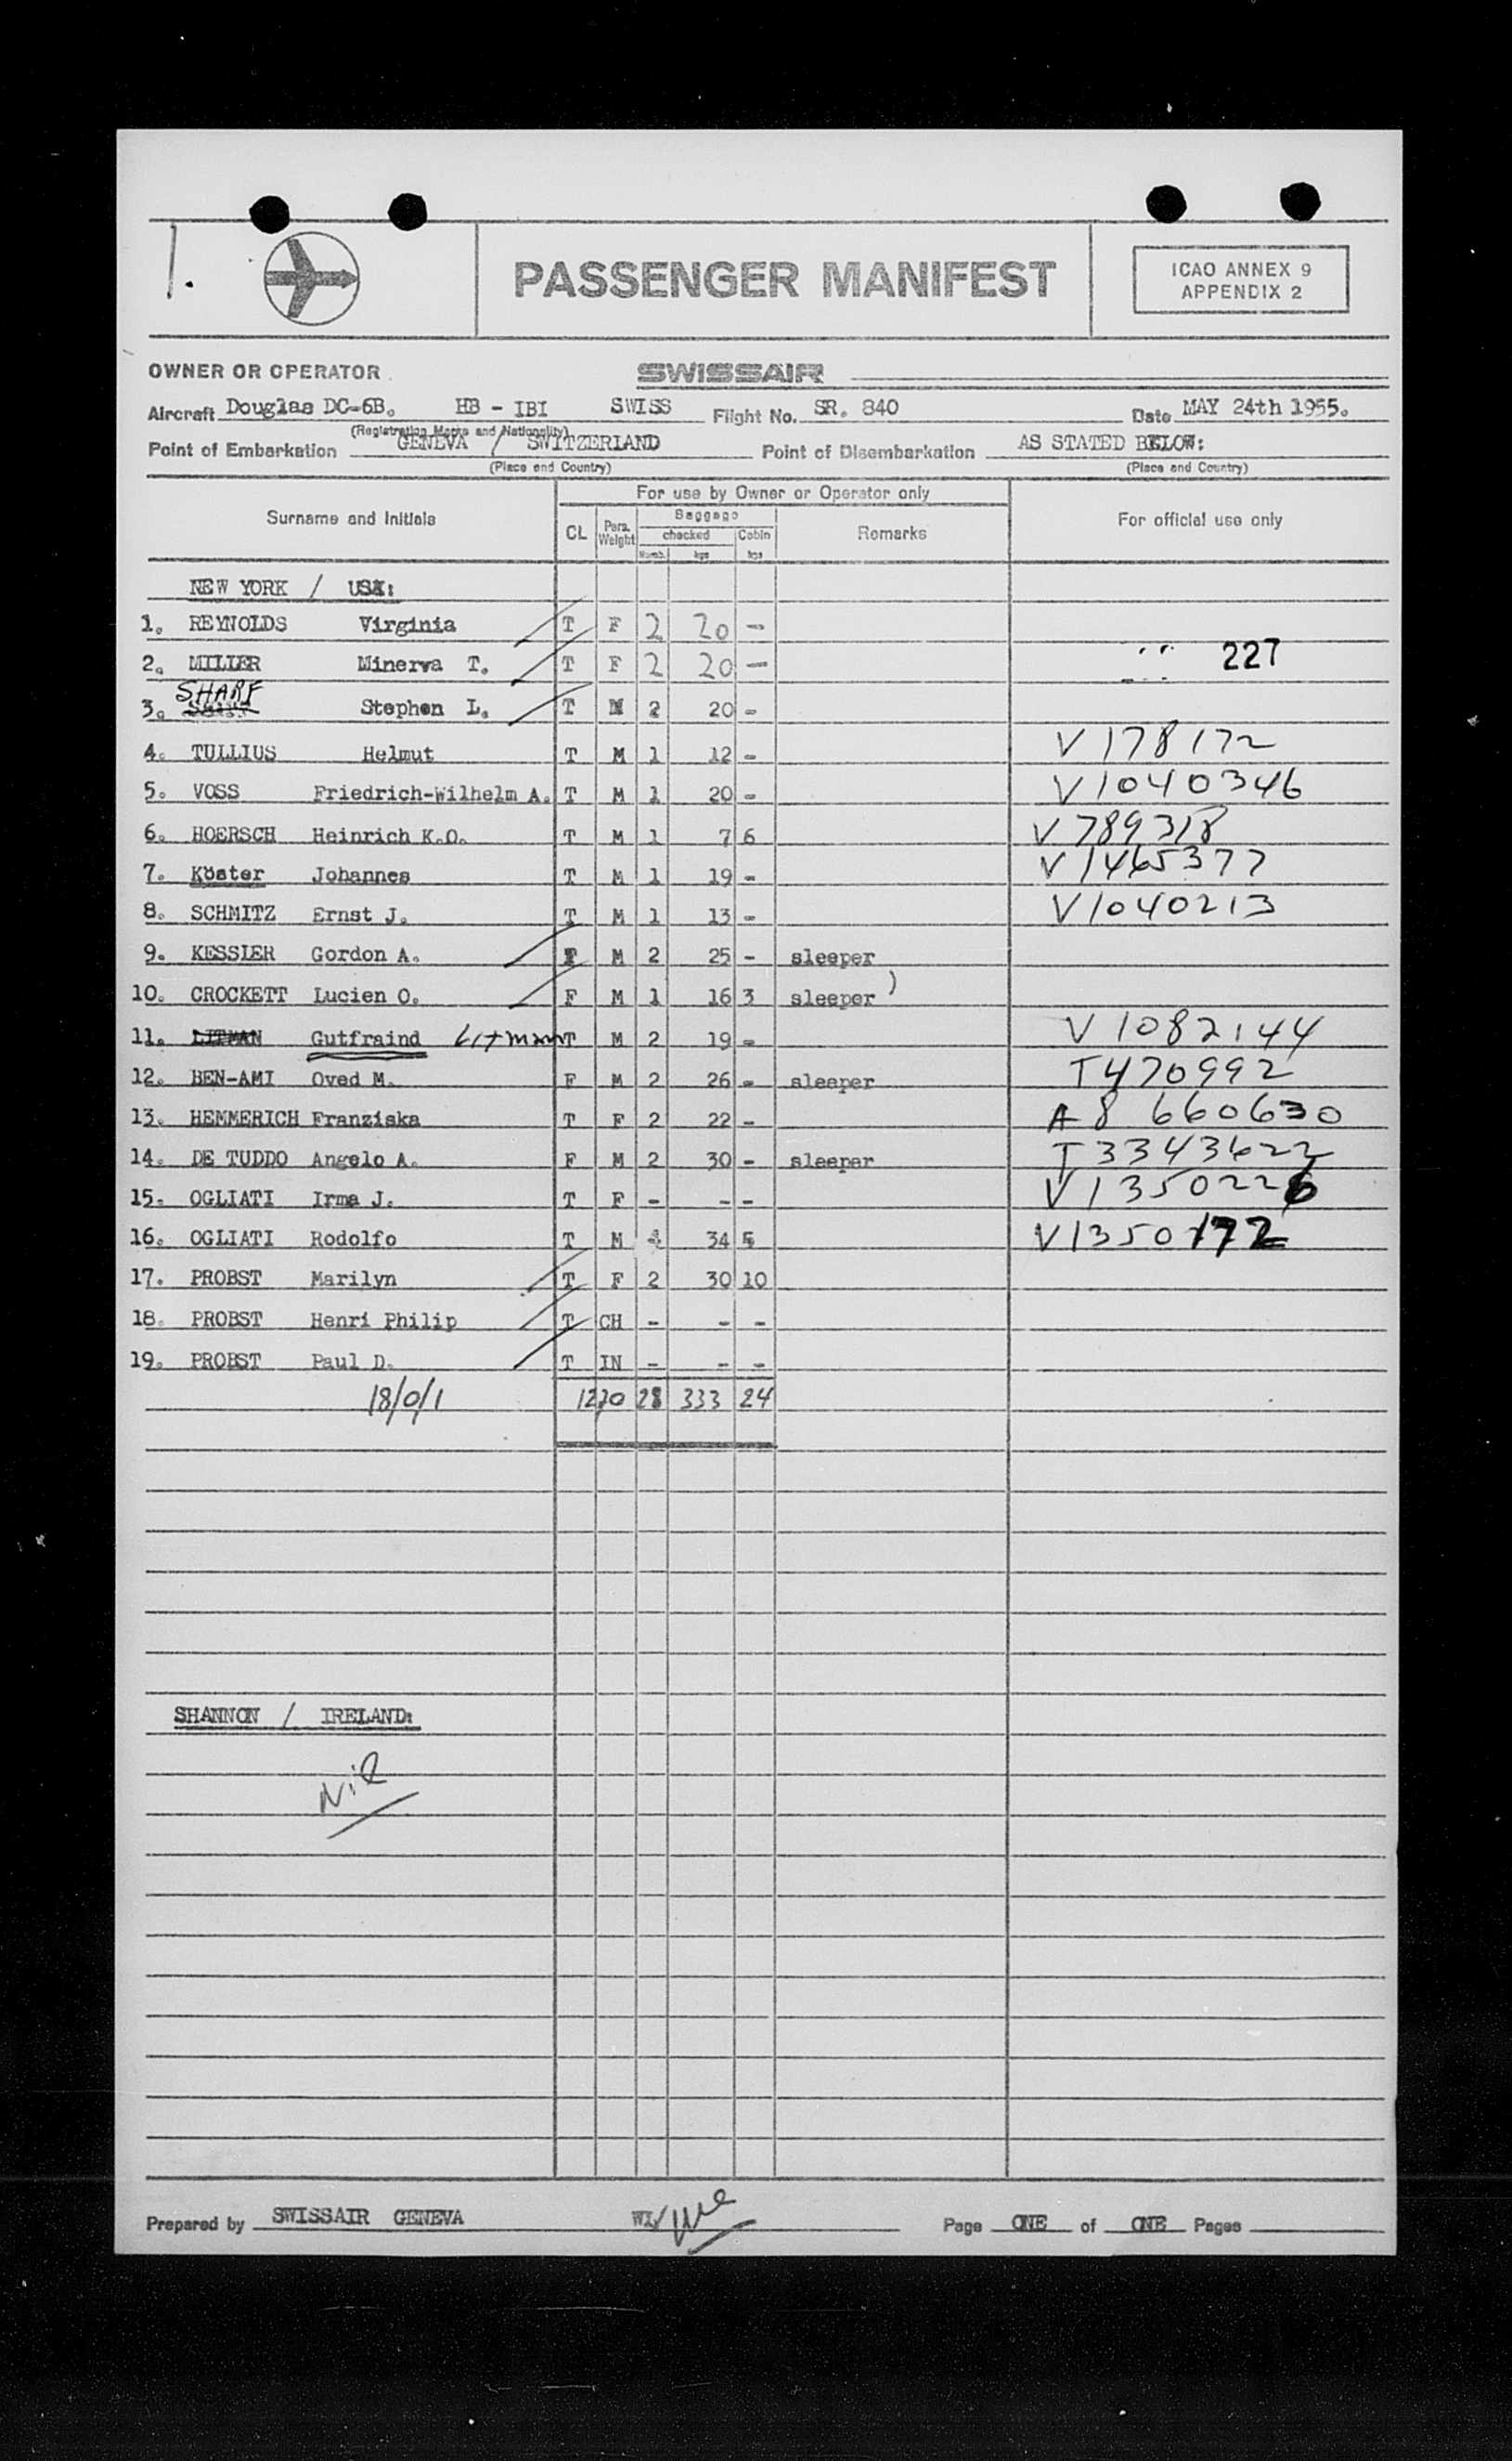 1.
PASSENGER MANIFEST
ICAO ANNEX 9
APPENDIX 2
OWNER OR OPERATOR SWISSAIR
Aircraft Douglas DC-6B. HB - IBI SWISS Flight No. SR. 840 Date MAY 24th 1955.
(Registration Marks and Nationality)
Point of Embarkation GENEVA / SWITZERLAND Point of Disembarkation AS STATED BELOW:
(Place and Country) (Place and Country)
For use by Owner or Operator only
Surname and Initials CL Pers. Weight Baggage checked Cabin Remarks For official use only
Numb. kgs kgs
NEW YORK / USA:
1. REYNOLDS Virginia T F 2 20 -
2. MILLER Minerva T. T F 2 20 - 227
3. SHARF Stephen L. T M 2 20 -
4. TULLIUS Helmut T M 1 12 - V178172
5. VOSS Friedrich-Wilhelm A. T M 1 20 - V1040346
6. HOERSCH Heinrich K.O. T M 1 7 6 V789318
7. Köster Johannes T M 1 19 - V1465377
8. SCHMITZ Ernst J. T M 1 13 - V1040213
9. KESSLER Gordon A. F M 2 25 - sleeper
10. CROCKETT Lucien O. F M 1 16 3 sleeper )
11. LITMAN Gutfraind Litman T M 2 19 - V1082144
12. BEN-AMI Oved M. F M 2 26 - sleeper T470992
13. HEMMERICH Franziska T F 2 22 - A8 660630
14. DE TUDDO Angelo A. F M 2 30 - sleeper T3343622
15. OGLIATI Irma J. T F - - - V1350226
16. OGLIATI Rodolfo T M 34 5 V1350172
17. PROBST Marilyn T F 2 30 10
18. PROBST Henri Philip T CH - - -
19. PROBST Paul D. T IN - - -
18/0/1 1230 28 333 24
SHANNON / IRELAND:
Nil
Prepared by SWISSAIR GENEVA Page ONE of ONE Pages